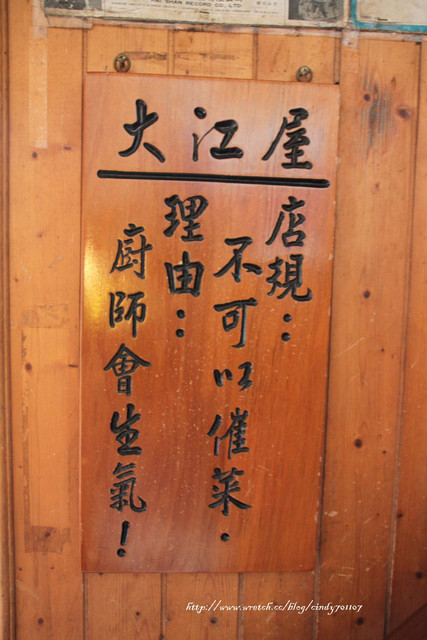 HAI SHAN RECORD CO., LTD
大江屋
店規：
不可以催菜．
理由：
廚師會生氣！
http://www.wretch.cc/blog/cindy701107